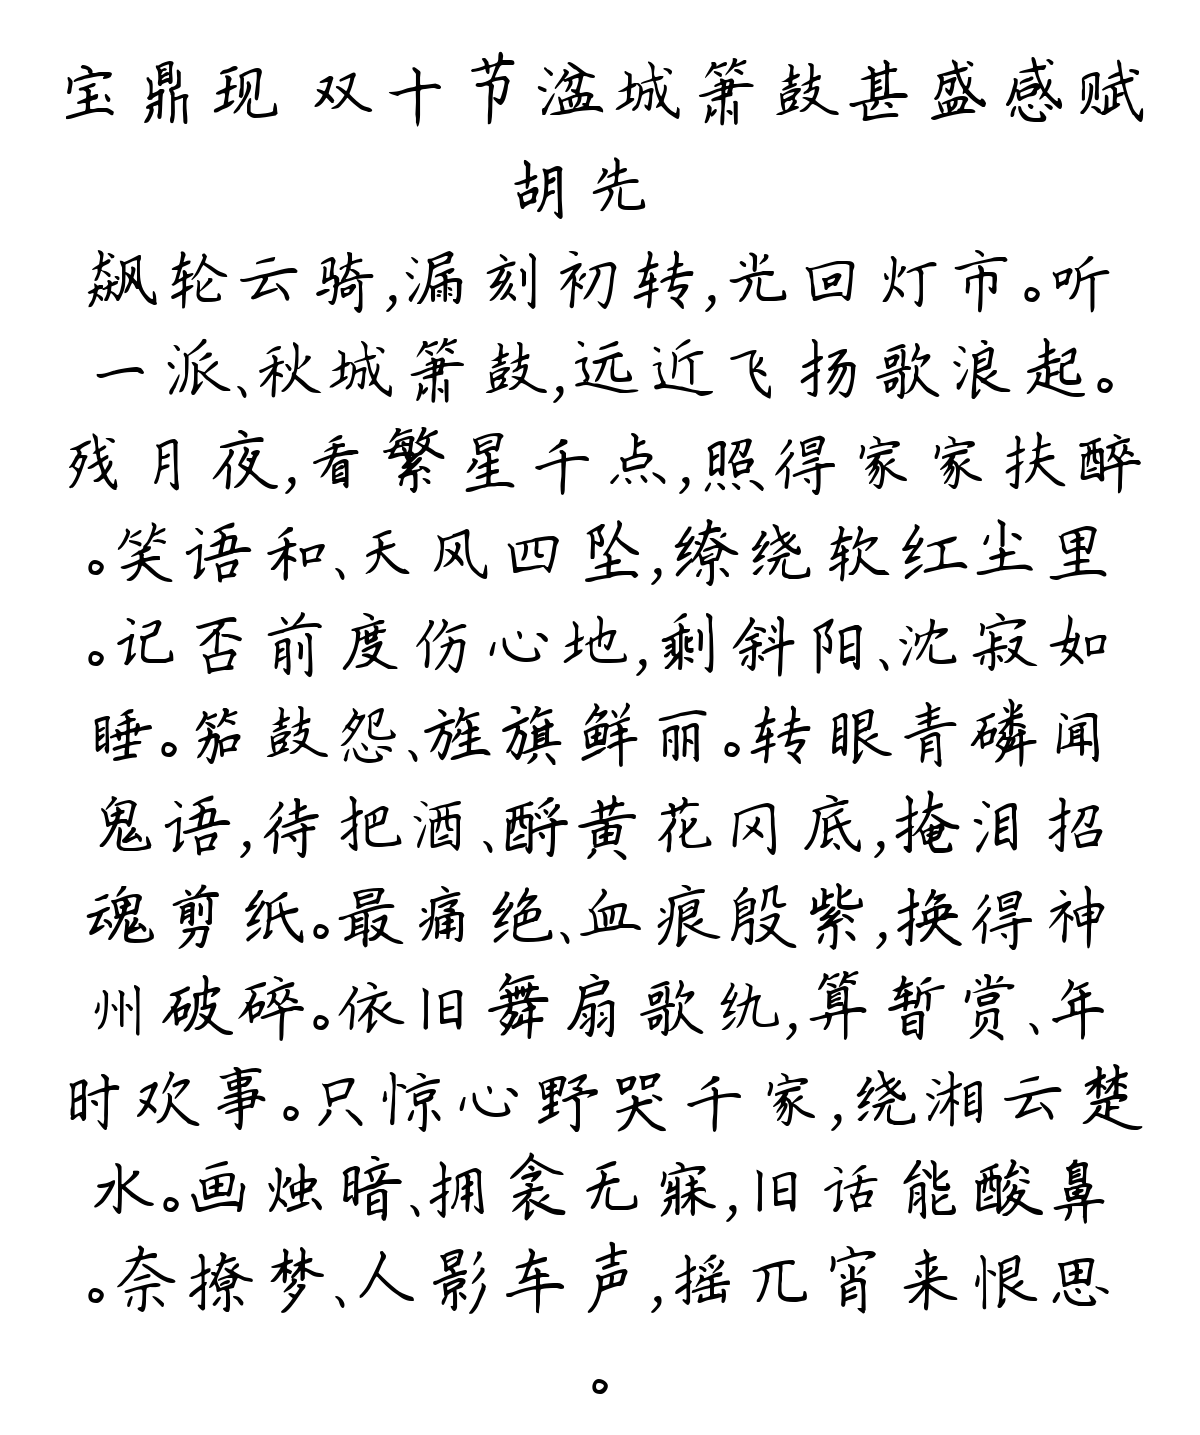 宝鼎现 双十节湓城箫鼓甚盛感赋
胡先
飙轮云骑,漏刻初转,光回灯市。听
一派、秋城箫鼓,远近飞扬歌浪起。
残月夜,看繁星千点,照得家家扶醉
。笑语和、天风四坠,缭绕软红尘里
。记否前度伤心地,剩斜阳、沈寂如
睡。笳鼓怨、旌旗鲜丽。转眼青磷闻
鬼语,待把酒、酹黄花冈底,掩泪招
魂剪纸。最痛绝、血痕殷紫,换得神
州破碎。依旧舞扇歌纨,算暂赏、年
时欢事。只惊心野哭千家,绕湘云楚
水。画烛暗、拥衾无寐,旧话能酸鼻
。奈撩梦、人影车声,摇兀宵来恨思
。